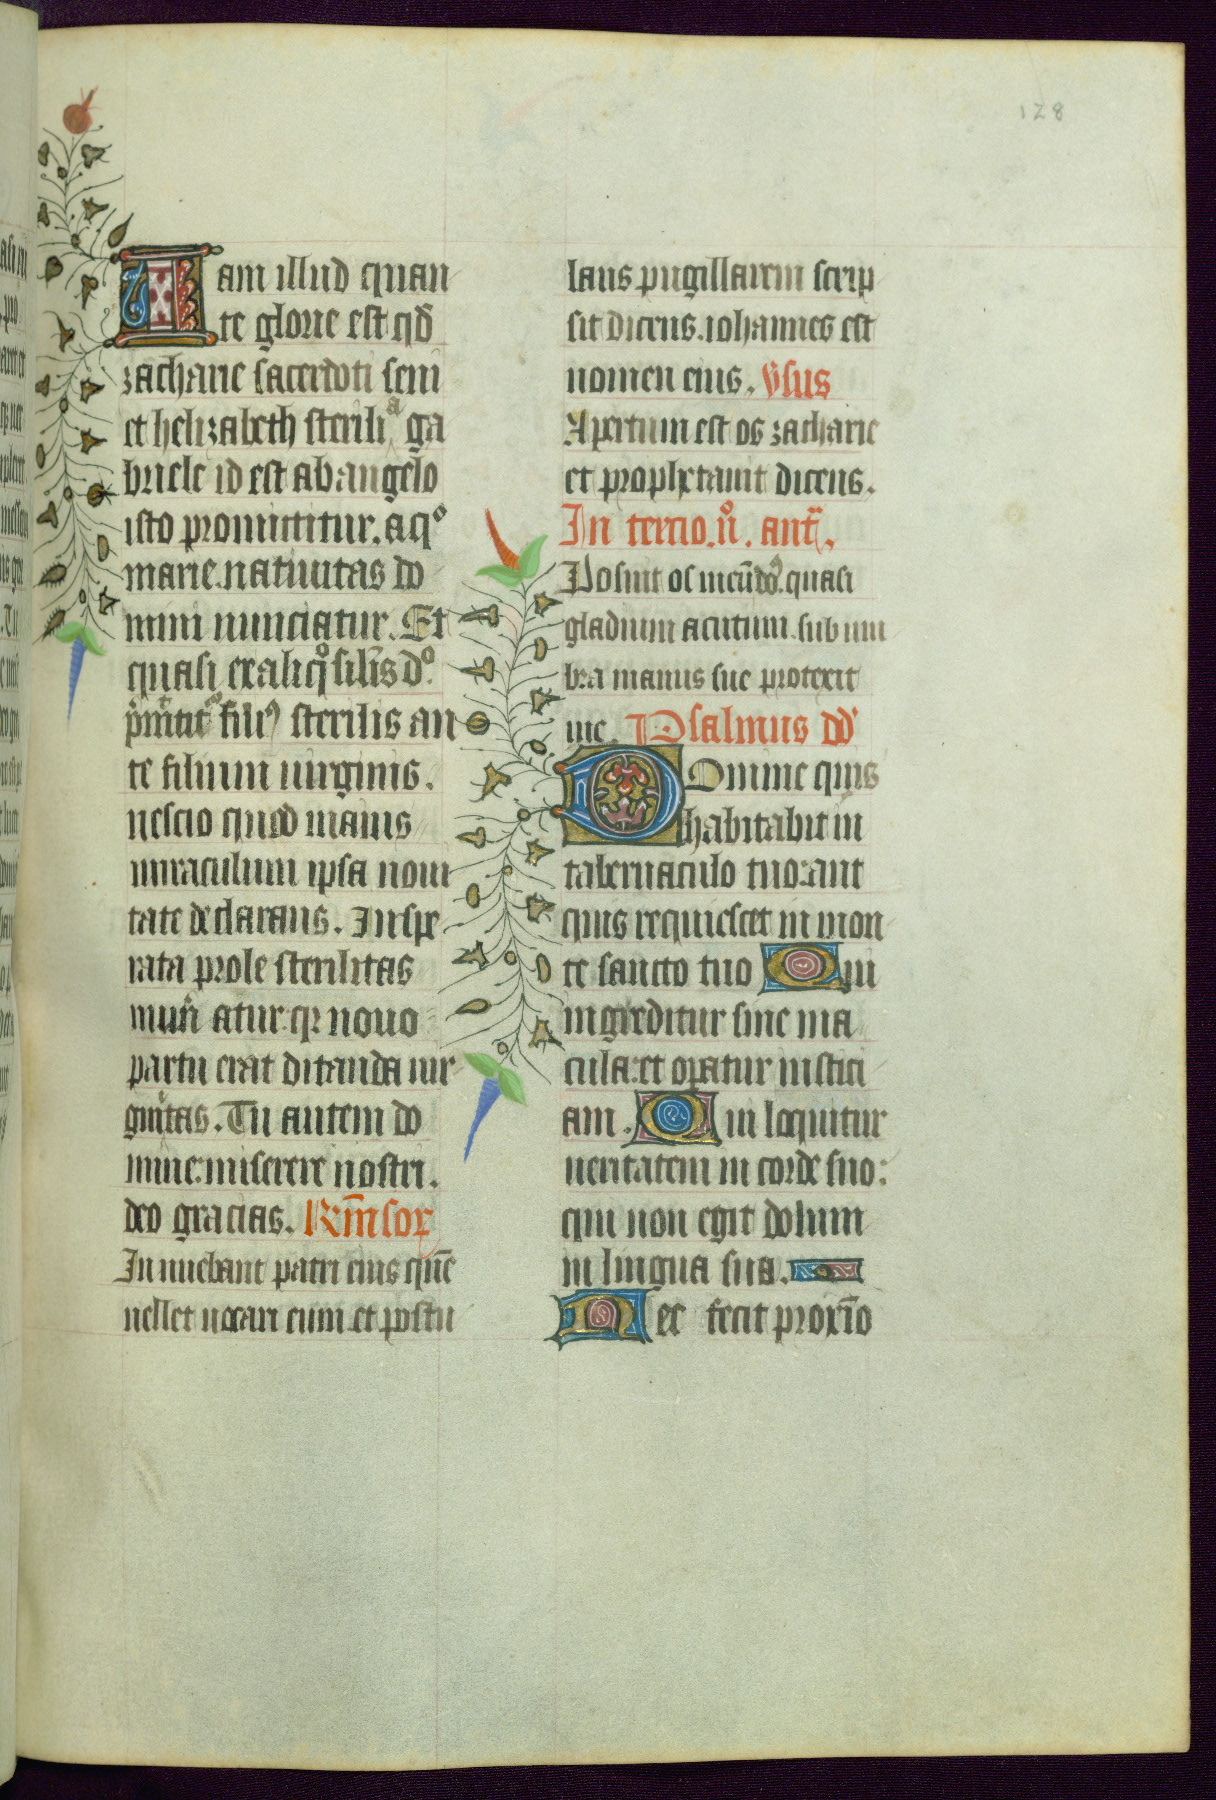 128
Iam illud quan
te glorie est qd
zacharie sacerdoti seni
et helizabeth sterili a ga
briele id est ab angelo
isto promittitur. a qo
marie. natiuitas do
mini nunciatur. Et
quasi ex aliq silis do.
pmittit filius sterilis an
te filium uirginis.
nescio quod maius
miraculum ipsa noui
tate declarans. Inspe
rata prole sterilitas
atur. q nouo
partu erat ditanda uir
ginitas. Tu autem do
mine. miserere nostri.
deo gracias.
Innuebant patri eius que
uellet uocari eum et postu
lans pugillarem scrip
sit dicens. iohannes est
nomen eius. Vsus
Apertum est os zacharie
et prophetauit dicens.
In tercio. n. ant.
Posuit os meu ds. quasi
gladium acutum. sub um
bra manus sue protexit
me. Psalmus dd
Domine quis
habitabit in
tabernaculo tuo: aut
quis requiescet in mon
te sancto tuo Qui
ingreditur sine ma
cula: et operatur iustici
am. Qui loquitur
ueritatem in corde suo:
qui non egit dolum
in lingua sua.
Nec fecit proximo